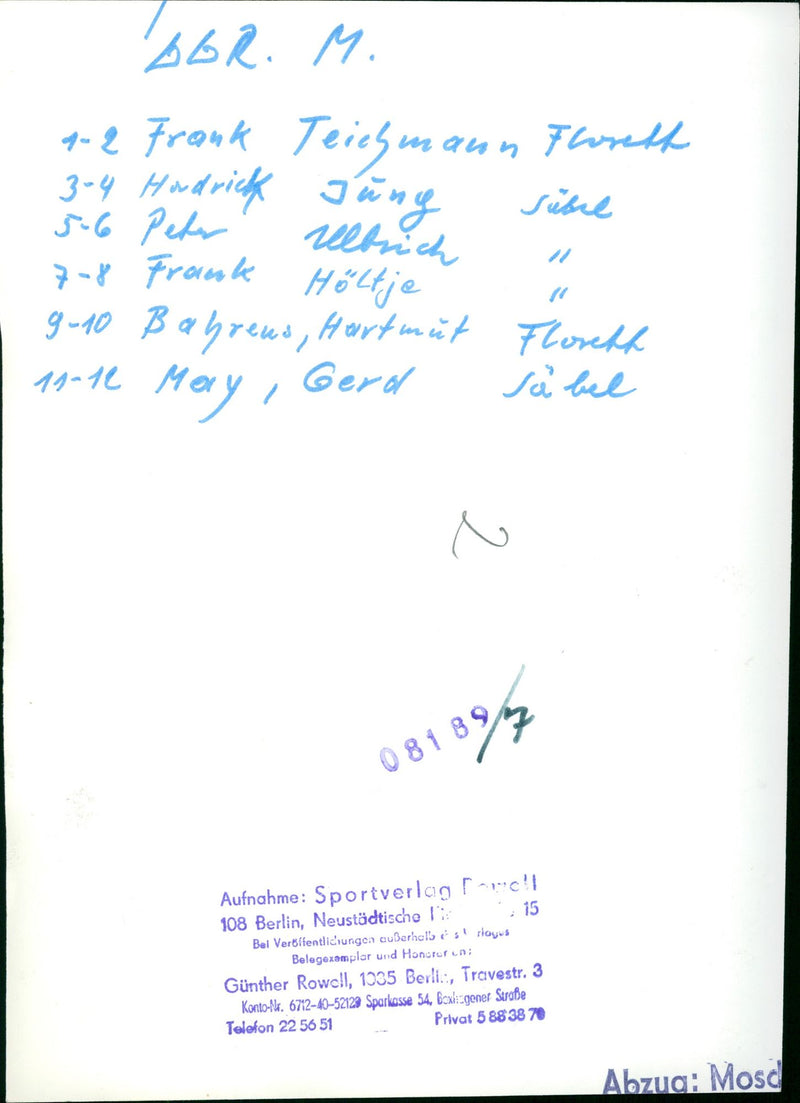 DDR. M.
1-2 Frank Teichmann Florett
3-4 Hendrick Jung Säbel
5-6 Peter Ulbrich "
7-8 Frank Höltje "
9-10 Bahrens, Hartmut Florett
11-12 May, Gerd Säbel
08189/7
Aufnahme: Sportverlag Rowell
108 Berlin, Neustädtische 15
Bei Veröffentlichungen außerhalb des Verlages
Belegexemplar und Honorar an:
Günther Rowell, 1035 Berlin, Travestr. 3
Konto-Nr. 6712-40-52129 Sparkasse 54, Boxhagener Straße
Telefon 22 56 51 Privat 5 88 38 70
Abzug: Mosd